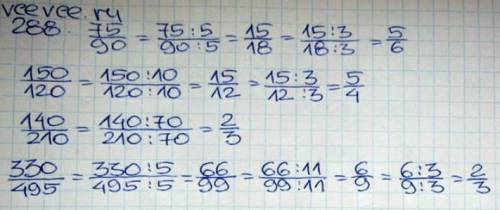 veevee.ru
288. 75/90 = 75:5/90:5 = 15/18 = 15:3/18:3 = 5/6
150/120 = 150:10/120:10 = 15/12 = 15:3/12:3 = 5/4
140/210 = 140:70/210:70 = 2/3
330/495 = 330:5/495:5 = 66/99 = 66:11/99:11 = 6/9 = 6:3/9:3 = 2/3